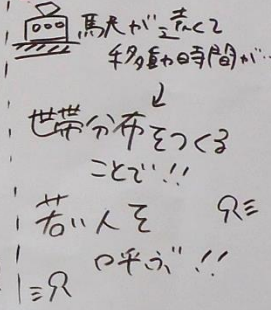 駅が遠くて
移動時間が…
↓
世帯分布をつくる
ことで!!
若い人を
呼ぶ!!